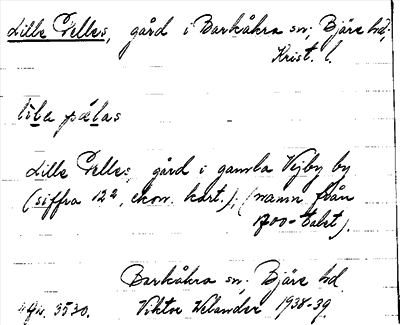 Lille Pelles, gård i Barkåkra sn; Bjäre hd;
Krist. l.
lìla pælas
Lille Pelles, gård i gamla Vejby by
(siffra 12a, ekon. kart.); (namn från
1700-talet)
Barkåkra sn; Bjäre hd.
5530. Viktor Welander 1938-39.